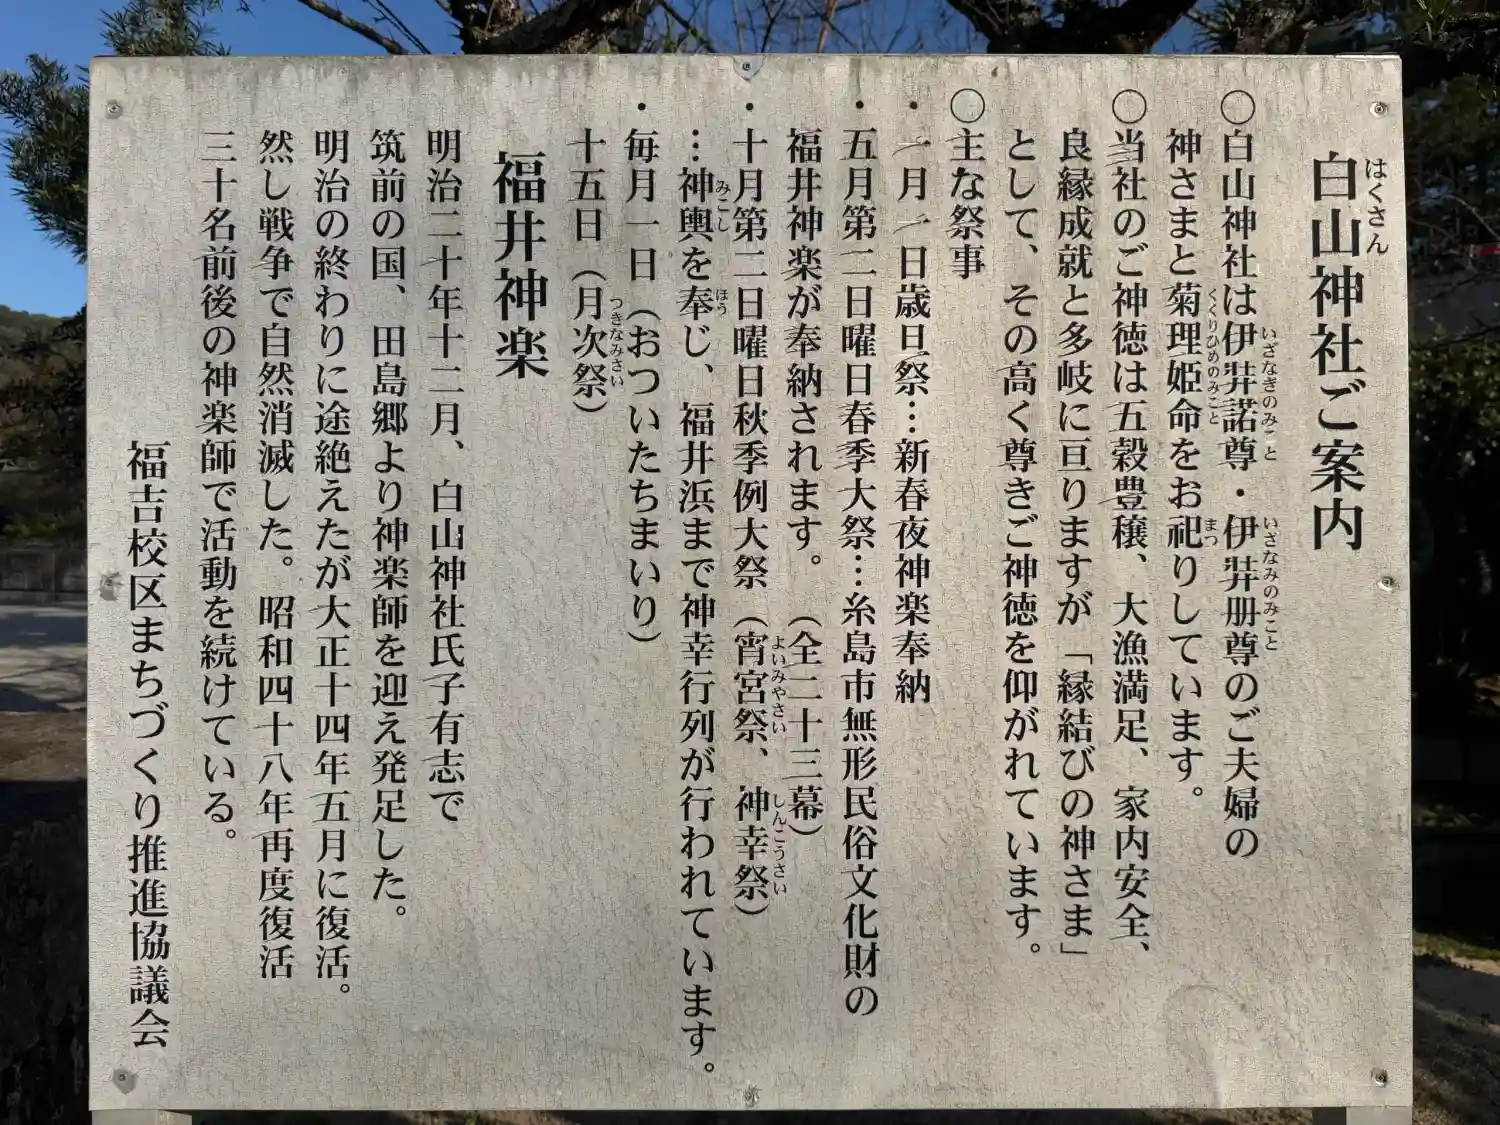 白山神社ご案内
はくさん
〇白山神社は伊弉諾尊・伊弉册尊のご夫婦の
いざなぎのみこと
いざなみのみこと
神さまと菊理姫命をお祀りしています。
くくりひめのみこと
まつ
〇当社のご神徳は五穀豊穣、大漁満足、家内安全、
良縁成就と多岐に亘りますが「縁結びの神さま」
として、その高く尊きご神徳を仰がれています。
〇主な祭事
・一月一日歳旦祭…新春夜神楽奉納
・五月第二日曜日春季大祭…糸島市無形民俗文化財の
福井神楽が奉納されます。（全二十三幕）
・十月第二日曜日秋季例大祭（宵宮祭、神幸祭）
よいみやさい
しんこうさい
…神輿を奉じ、福井浜まで神幸行列が行われています。
みこし
ほう
・毎月一日（おついたちまいり）
十五日（月次祭）
つきなみさい
福井神楽
明治二十年十二月、白山神社氏子有志で
筑前の国、田島郷より神楽師を迎え発足した。
明治の終わりに途絶えたが大正十四年五月に復活。
然し戦争で自然消滅した。昭和四十八年再度復活
三十名前後の神楽師で活動を続けている。
福吉校区まちづくり推進協議会